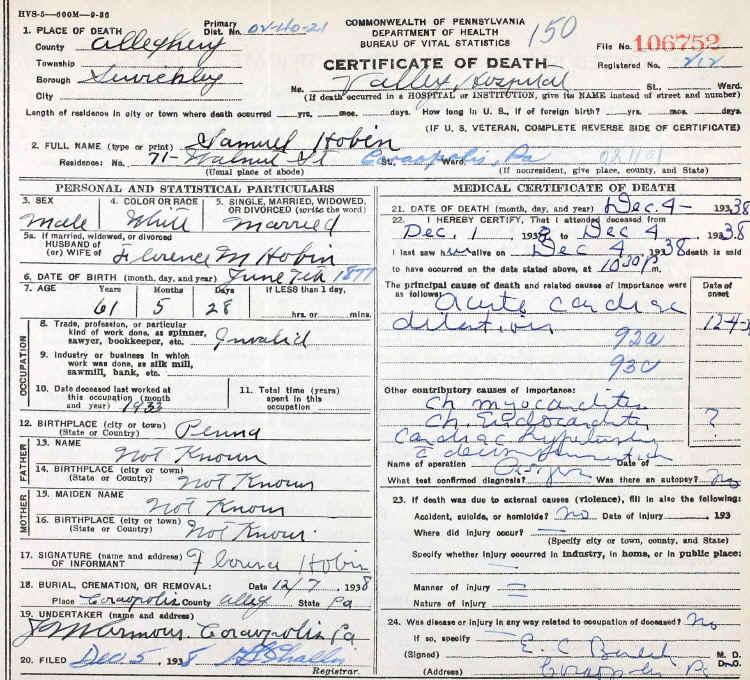 HVS-5—600M—9-36
COMMONWEALTH OF PENNSYLVANIA
DEPARTMENT OF HEALTH
BUREAU OF VITAL STATISTICS
150
File No. 106752
Primary Dist. No. 02-40-21
1. PLACE OF DEATH
County Allegheny
Township
Borough Sewickley
City
CERTIFICATE OF DEATH
Registered No. 212
No. Valley Hospital St., Ward.
(If death occurred in a HOSPITAL or INSTITUTION, give its NAME instead of street and number)
Length of residence in city or town where death occurred yrs. mos. days. How long in U. S., if of foreign birth? yrs. mos. days.
(IF U. S. VETERAN, COMPLETE REVERSE SIDE OF CERTIFICATE)
2. FULL NAME (type or print) Samuel Hobin
Residence: No. 71- Walnut St St., Coraopolis, Pa Ward.
(Usual place of abode) (If nonresident, give place, county, and State)
PERSONAL AND STATISTICAL PARTICULARS
3. SEX Male
4. COLOR OR RACE White
5. SINGLE, MARRIED, WIDOWED, OR DIVORCED (write the word) Married
5a. If married, widowed, or divorced
HUSBAND of
(or) WIFE of Florence M Hobin
6. DATE OF BIRTH (month, day, and year) June 7th 1877
7. AGE Years Months Days If LESS than 1 day,
61 5 28 hrs. or mins.
OCCUPATION
8. Trade, profession, or particular
kind of work done, as spinner,
sawyer, bookkeeper, etc. Invalid
9. Industry or business in which
work was done, as silk mill,
sawmill, bank, etc.
10. Date deceased last worked at
this occupation (month
and year) 1933
11. Total time (years)
spent in this
occupation
12. BIRTHPLACE (city or town)
(State or Country) Penna
FATHER
13. NAME Not Known
14. BIRTHPLACE (city or town)
(State or Country) Not Known
MOTHER
15. MAIDEN NAME Not Known
16. BIRTHPLACE (city or town)
(State or Country) Not Known
17. SIGNATURE (name and address)
OF INFORMANT Florence Hobin
18. BURIAL, CREMATION, OR REMOVAL: Date 12/7, 1938
Place Coraopolis County Alleg State Pa
19. UNDERTAKER (name and address)
Coraopolis Pa
20. FILED Dec. 5, 1938
Registrar.
MEDICAL CERTIFICATE OF DEATH
21. DATE OF DEATH (month, day, and year) Dec. 4- 1938
22. I HEREBY CERTIFY, That I attended deceased from
Dec. 1, 1938 to Dec 4, 1938
I last saw him alive on Dec 4, 1938 death is said
to have occurred on the date stated above, at 1030P m.
The principal cause of death and related causes of importance were
as follows: Date of onset
Acute cardiac
dilatation 12-4-
92a
93c
Other contributory causes of importance:
Ch myocarditis
Ch. Endocarditis ?
Cardiac hypertrophy
c decompensation
Name of operation Date of
What test confirmed diagnosis? Was there an autopsy? No
23. If death was due to external causes (violence), fill in also the following:
Accident, suicide, or homicide? No Date of injury , 193
Where did injury occur? —
(Specify city or town, county, and State)
Specify whether injury occurred in industry, in home, or in public place:
Manner of injury
Nature of injury
24. Was disease or injury in any way related to occupation of deceased? No
If so, specify
(Signed) E. C. M. D. D. O.
(Address) Coraopolis Pa